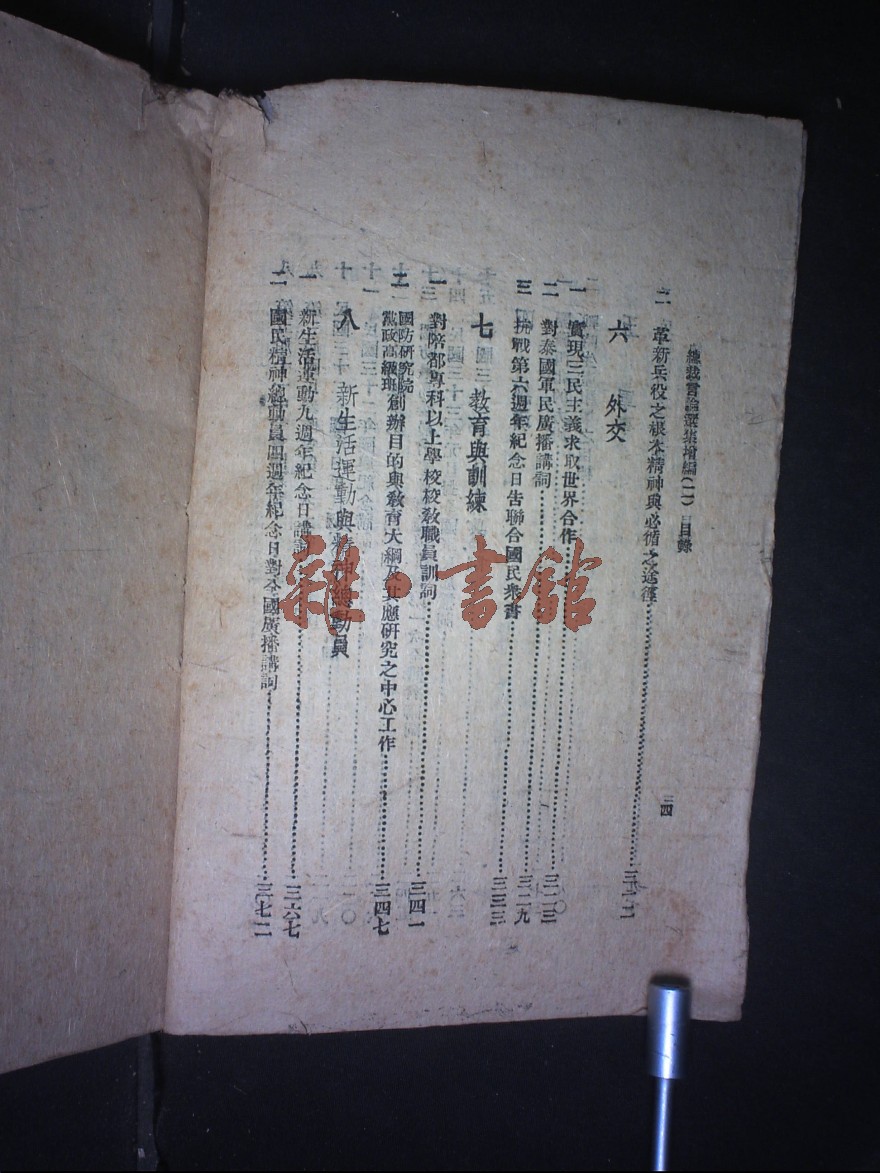 總裁言論選集增編(一)目錄
三四
二 革新兵役之根本精神與必循之途徑
六 外交
一 實現三民主義求取世界合作
二 對泰國軍民廣播講詞 三二九
三 抗戰第六週年紀念日告聯合國民衆書 三三三
七 教育與訓練
一 對陪都專科以上學校校教職員訓詞 三四一
二 國防研究院黨政高級班創辦目的與教育大綱及其應研究之中心工作 三四七
八 新生活運動與精神總動員
一 新生活運動九週年紀念日講詞 三六七
二 國民精神總動員四週年紀念日對全國廣播講詞 三七二
雜·書館